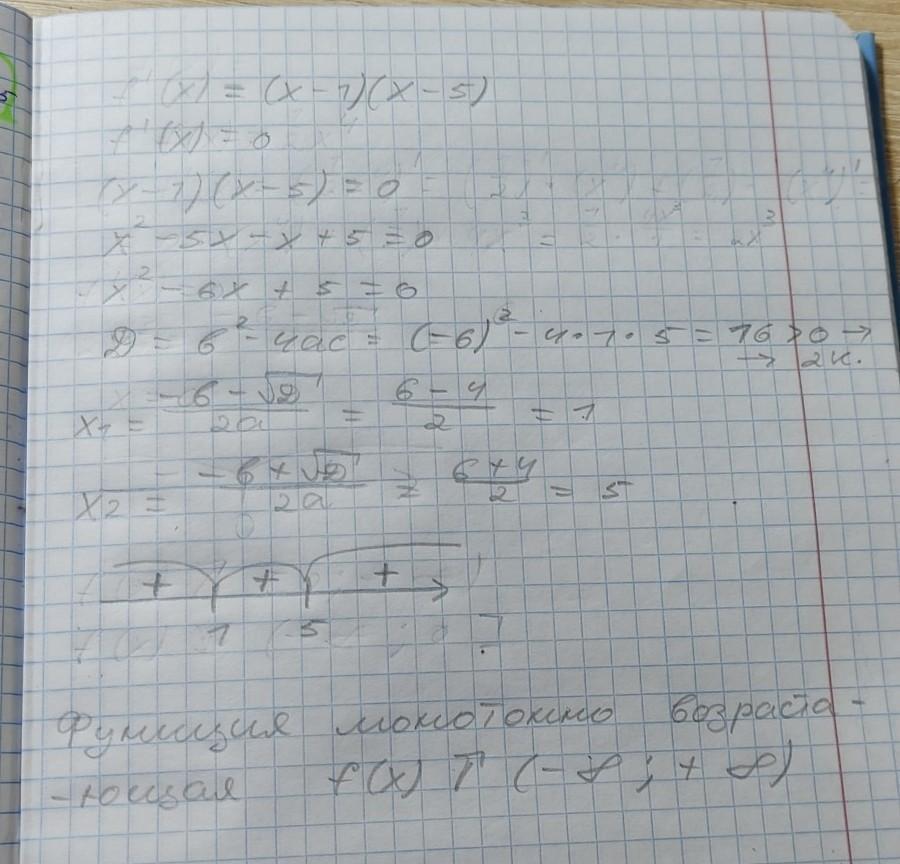 f'(x) = (x-1)(x-5)
f'(x) = 0
(x-1)(x-5) = 0
x² - 5x - x + 5 = 0
x² - 6x + 5 = 0
D = b² - 4ac = (-6)² - 4·1·5 = 16 > 0 →
→ 2 к.
x₁ = (-b - √D)/2a = (6 - 4)/2 = 1
x₂ = (-b + √D)/2a = (6 + 4)/2 = 5
+ + +
1 5
Функция монотонно возраста-
-ющая f(x) ↑ (-∞; +∞)